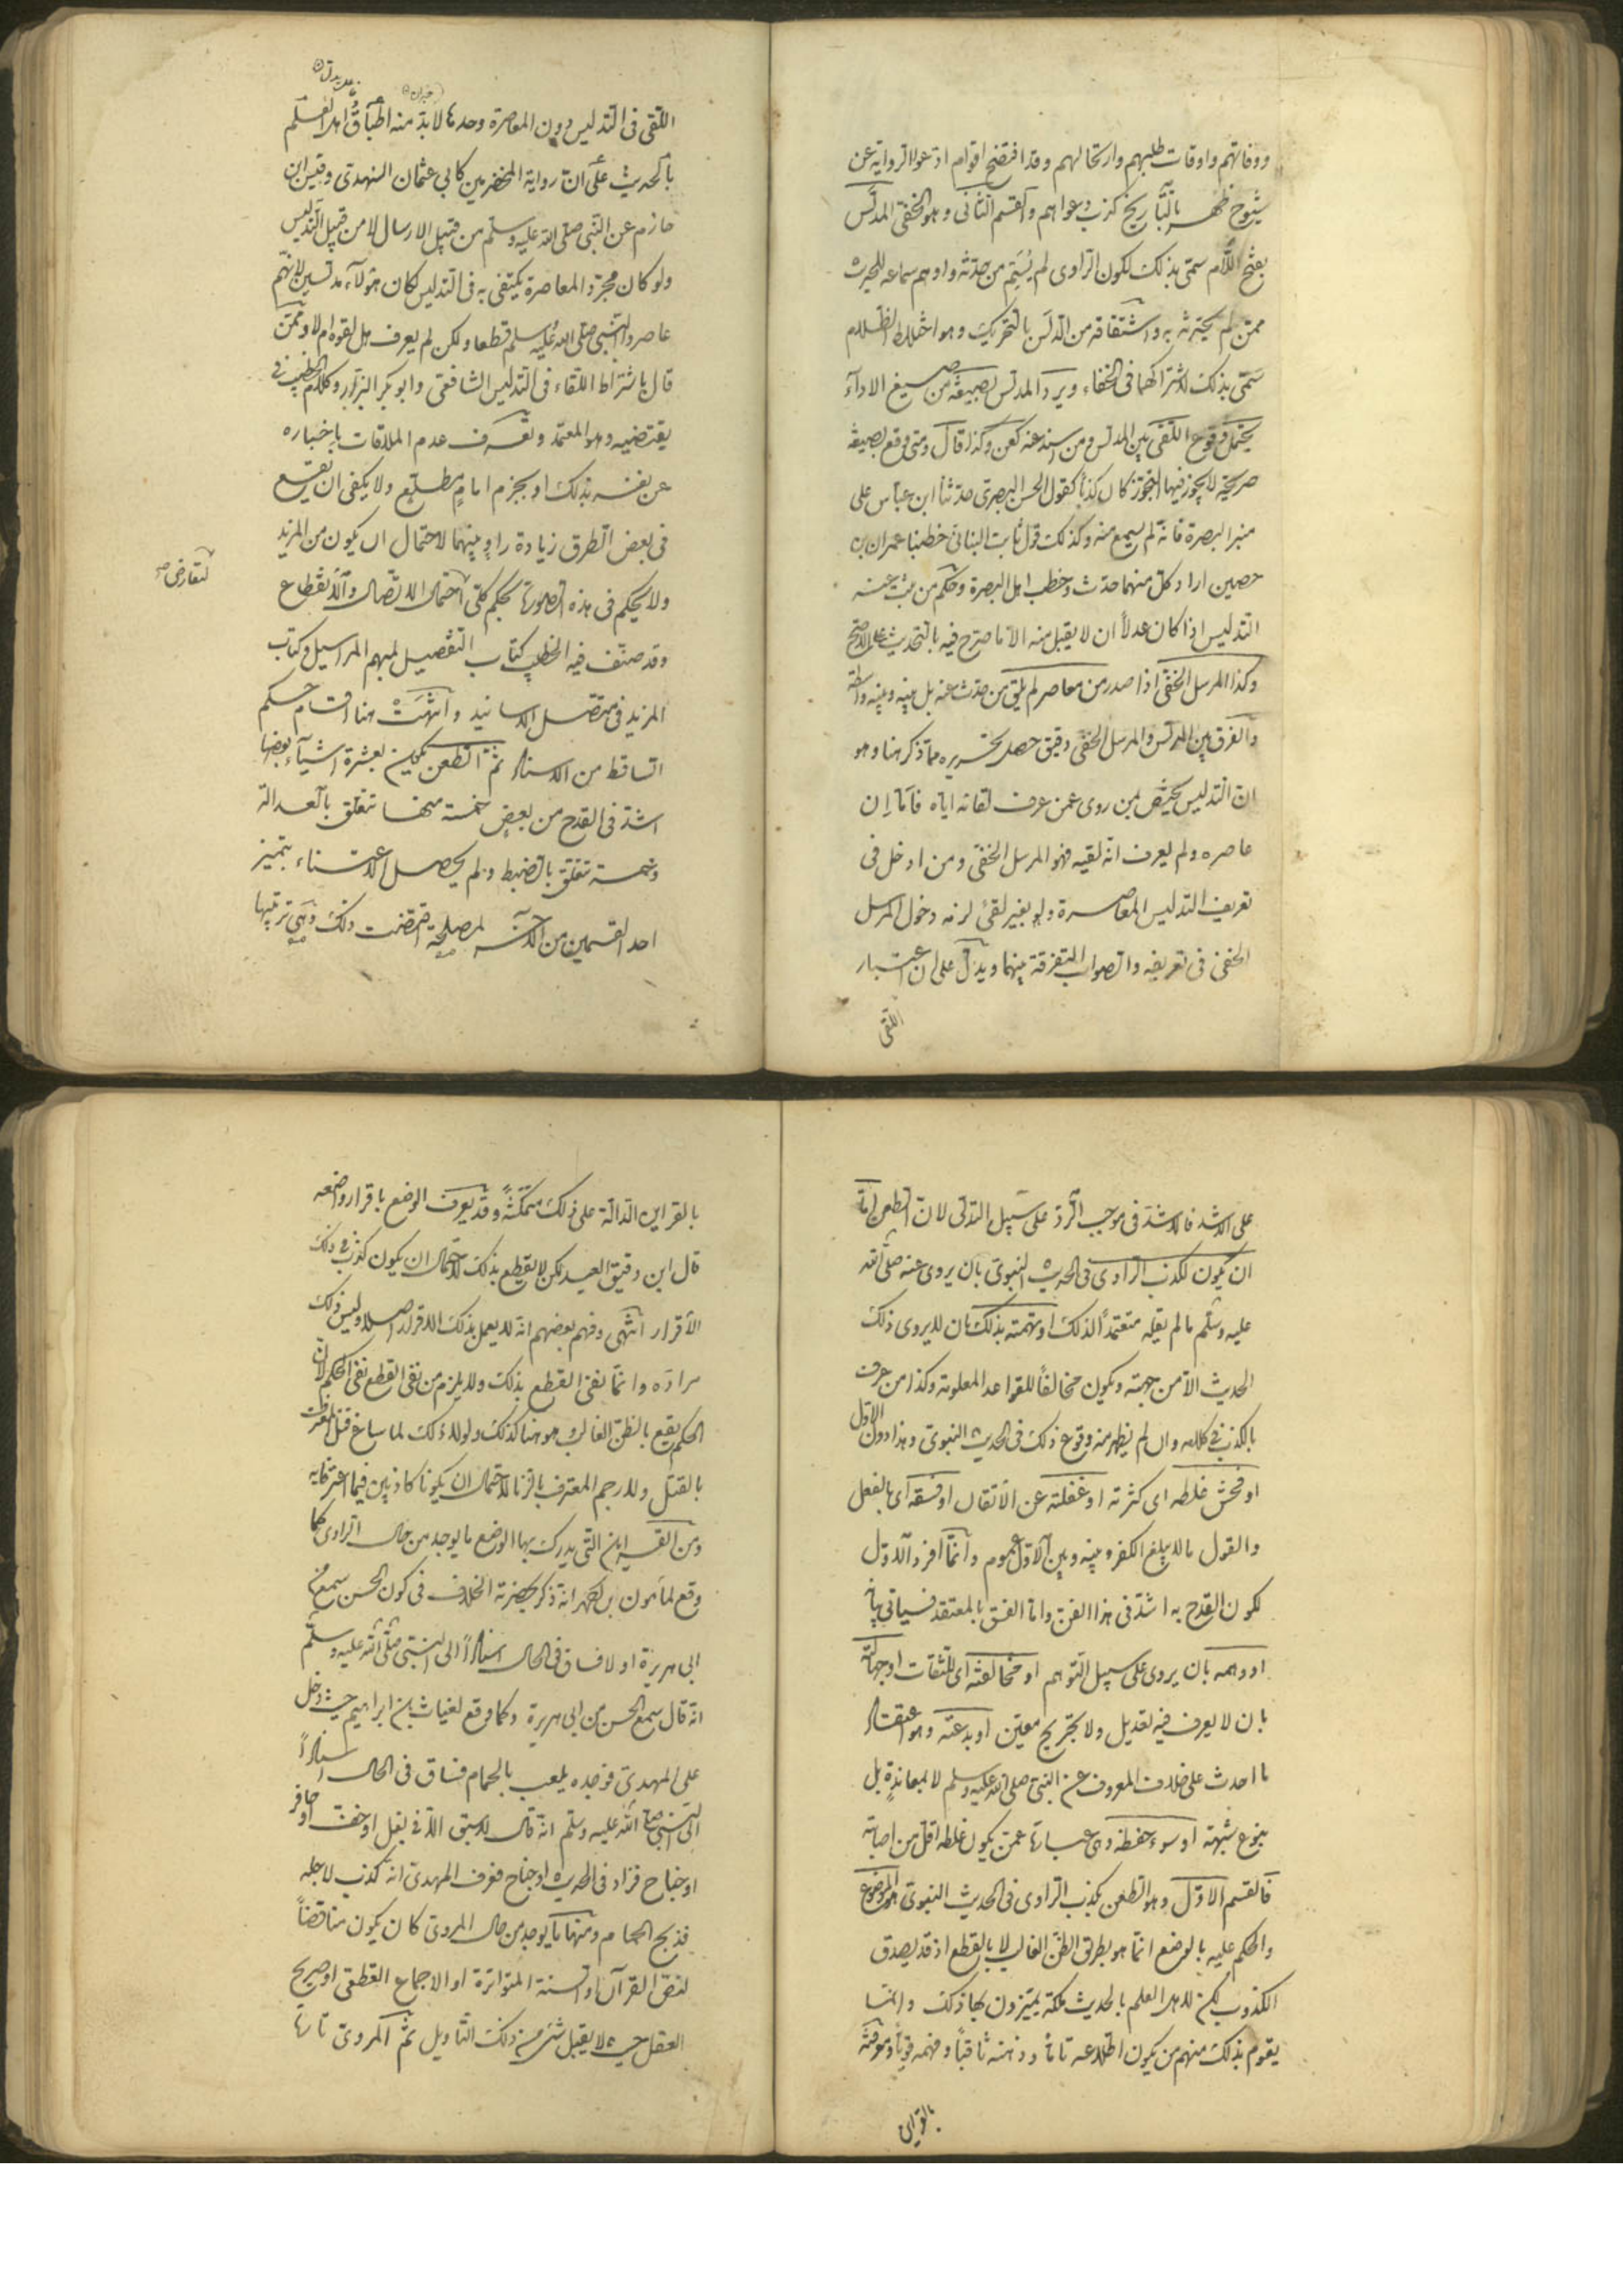 ووفاتهم واوقات طلبهم وارتحالهم وقد افتضح اقوام ادعوا الرواية عن
شيوخ ظهر بالتاريخ كذب دعواهم والقسم الثاني وهو الخفي المدلَّس
بفتح اللام سمى بذلك لكون الراوى لم يُسَمِّ من حدثه واوهم سماعه للحديث
ممن لم يحدثه به واشتقاقه من الدَلَس بالتحريك وهو اختلاط الظلام
سمى بذلك لاشتراكهما فى الخفاء ويرد المدلس بصيغة من صيغ الاداء
يحتمل وقوع اللقى بين المدلس ومن اسند عنه كعن وكذا قال ومتى وقع بصيغة
صريحة لا تجوز فيها التجوز كان كذبا كقول الحسن البصرى حدثنا ابن عباس على
منبر البصرة فانه لم يسمع منه وكذلك قول ثابت البنانى خطبنا عمران بن
حصين اراد كل منهما حدث وخطب اهل البصرة وحكم من ثبت عنه
التدليس اذا كان عدلاً ان لا يقبل منه الا ما صرح فيه بالتحديث على الاصح
وكذا المرسل الخفى اذا صدر من معاصر لم يلق من حدث عنه بل بينه وبينه واسطة
والفرق بين المدلس والمرسل الخفى دقيق حصل تحريره مما ذكر هنا وهو
ان التدليس يختص بمن روى عمن عرف لقاءه اياه فاما ان
عاصره ولم يعرف انه لقيه فهو المرسل الخفى ومن ادخل فى
تعريف التدليس المعاصرة ولو بغير لقى لزمه دخول المرسل
الخفى فى تعريفه والصواب التفرقة بينهما ويدل على ان اعتبار
اللقى
اللقى فى التدليس دون المعاصرة وحدها لابد منه اطباق اهل العلم
بالحديث على ان رواية المخضرمين كابي عثمان النهدى وقيس ابن
حازم عن النبى صلى الله عليه وسلم من قبيل الارسال لا من قبيل التدليس
ولو كان مجرد المعاصرة يكتفى به فى التدليس لكان هؤلآء مدلسين لانهم
عاصروا النبى صلى الله عليه وسلم قطعا ولكن لم يعرف هل لقوه ام لا وممن
قال باشتراط اللقاء فى التدليس الشافعى وابو بكر البزار وكلام الخطيب فى
يقتضيه وهو المعتمد وتعرف عدم الملاقات باخباره
عن نفسه بذلك او بجزم امامٍ مطلع ولا يكفى ان يقع
فى بعض الطرق زيادة راوٍ بينهما لاحتمال ان يكون من المزيد
ولا يحكم فى هذه الصورة بحكم كلى احتمال الاتصال والانقطاع
لتعارض
وقد صنف فيه الخطيب كتاب التفصيل لمبهم المراسيل وكتاب
المزيد فى متصل الاسانيد وانتهت هنا اقسام حكم
الساقط من الاسناد ثم الطعن يكون بعشرة اشيآء بعضها
اشد فى القدح من بعضٍ خمسة منها تتعلق بالعدالة
وخمسة تتعلق بالضبط ولم يحصل الاعتناء بتميز
احد القسمين من الآخر لمصلحة اقتضت ذلك وهى ترتيبها
على الاشد فالاشد فى موجب الرد على سبيل التدلى لان الطعن اما
ان يكون لكذب الراوى فى الحديث النبوى بان يروى عنه صلى الله
عليه وسلم ما لم يقله متعمداً لذلك او تهمته بذلك بان لا يروى ذلك
الحديث الا من جهته ويكون مخالفاً للقواعد المعلومة وكذا من عرف
بالكذب فى كلامه وان لم يظهر منه وقوع ذلك فى الحديث النبوى وهذا دون الاول
او فحش غلطه اى كثرته او غفلته عن الاتقان او فسقه اى بالفعل
والقول مالا يبلغ الكفر وبينه وبين الاول عموم وانما افرد الاول
لكون القدح به اشد فى هذا الفن واما الفسق بالمعتقد فسياتى بيانه
او وهمه بان يروى على سبيل التوهم او مخالفته اى للثقات او جهالته
بان لا يعرف فيه تعديل ولا تجريح معين او بدعته وهو اعتقاد
ما احدث على خلاف المعروف عن النبى صلى الله عليه وسلم لا بمعاندةٍ بل
بنوع شبهة او سوء حفظه وهى عبارة عمن يكون غلطه اقل من اصابته
فالقسم الاول وهو الطعن بكذب الراوى فى الحديث النبوى هو الموضوع
والحكم عليه بالوضع انما هو بطريق الظن الغالب لا بالقطع اذ قد يصدق
الكذوب لكن لاهل العلم بالحديث ملكة يميزون بها ذلك وانما
يقوم بذلك منهم من يكون اطلاعه تاماً وذهنه ثاقباً وفهمه قوياً ومعرفته
بالقراين
بالقراين الدالة على ذلك متمكنةً وقد يعرف الوضع باقرار واضعه
قال ابن دقيق العيد لكن لا يقطع بذلك لاحتمال ان يكون كذب فى ذلك
الاقرار انتهى وفهم بعضهم انه لا يعمل بذلك الاقرار اصلا وليس ذلك
مراده وانما نفى القطع بذلك ولا يلزم من نفى القطع نفى الحكم لان
الحكم يقع بالظن الغالب وهو هنا كذلك ولولا ذلك لما ساغ قتل المقر
بالقتل ولا رجم المعترف بالزنا لاحتمال ان يكونا كاذبين فيما اعترفا به
ومن القراين التى يدرك بها الوضع ما يوجد من حال الراوى كما
وقع لمأمون بن احمد انه ذكر بحضرته الخلاف فى كون الحسن سمع من
ابى هريرة او لا فساق فى الحال اسناداً الى النبى صلى الله عليه وسلم
انه قال سمع الحسن من ابى هريرة وكما وقع لغياث بن ابراهيم حيث دخل
على المهدى فوجده يلعب بالحمام فساق فى الحال اسناداً
الى النبى صلى الله عليه وسلم انه قال لا سبق الا فى نصل او خف او حافر
او جناح فزاد فى الحديث او جناح فعرف المهدى انه كذب لاجله
فذبح الحمام ومنها ما يوجد من حال المروى كان يكون مناقضاً
لنص القرآن او السنة المتواترة او الاجماع القطعى او صريح
العقل حيث لا يقبل شئ من ذلك التأويل ثم المروى تارة